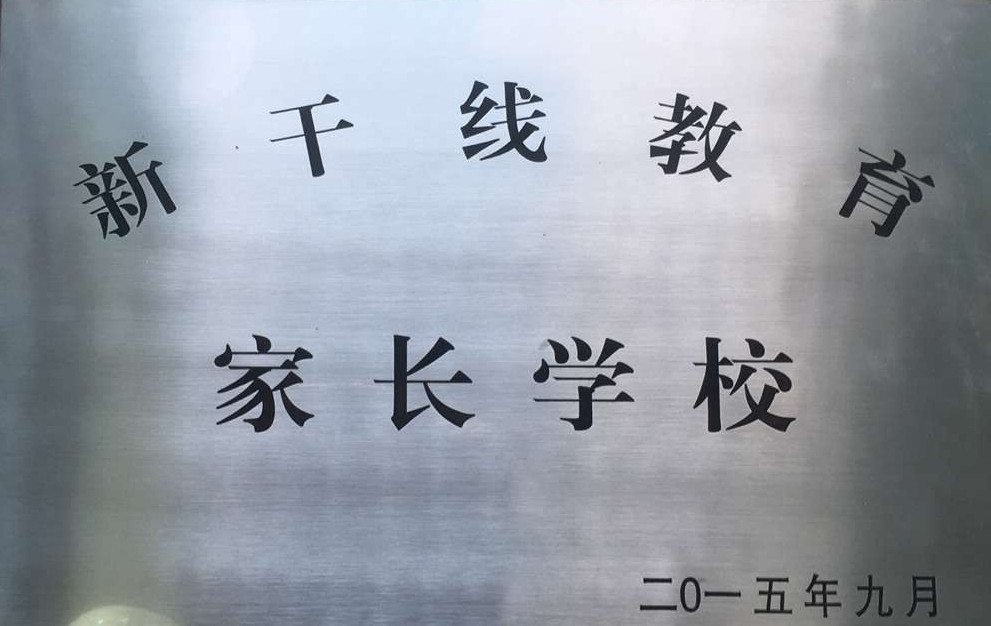 新干线教育
家长学校
二0一五年九月